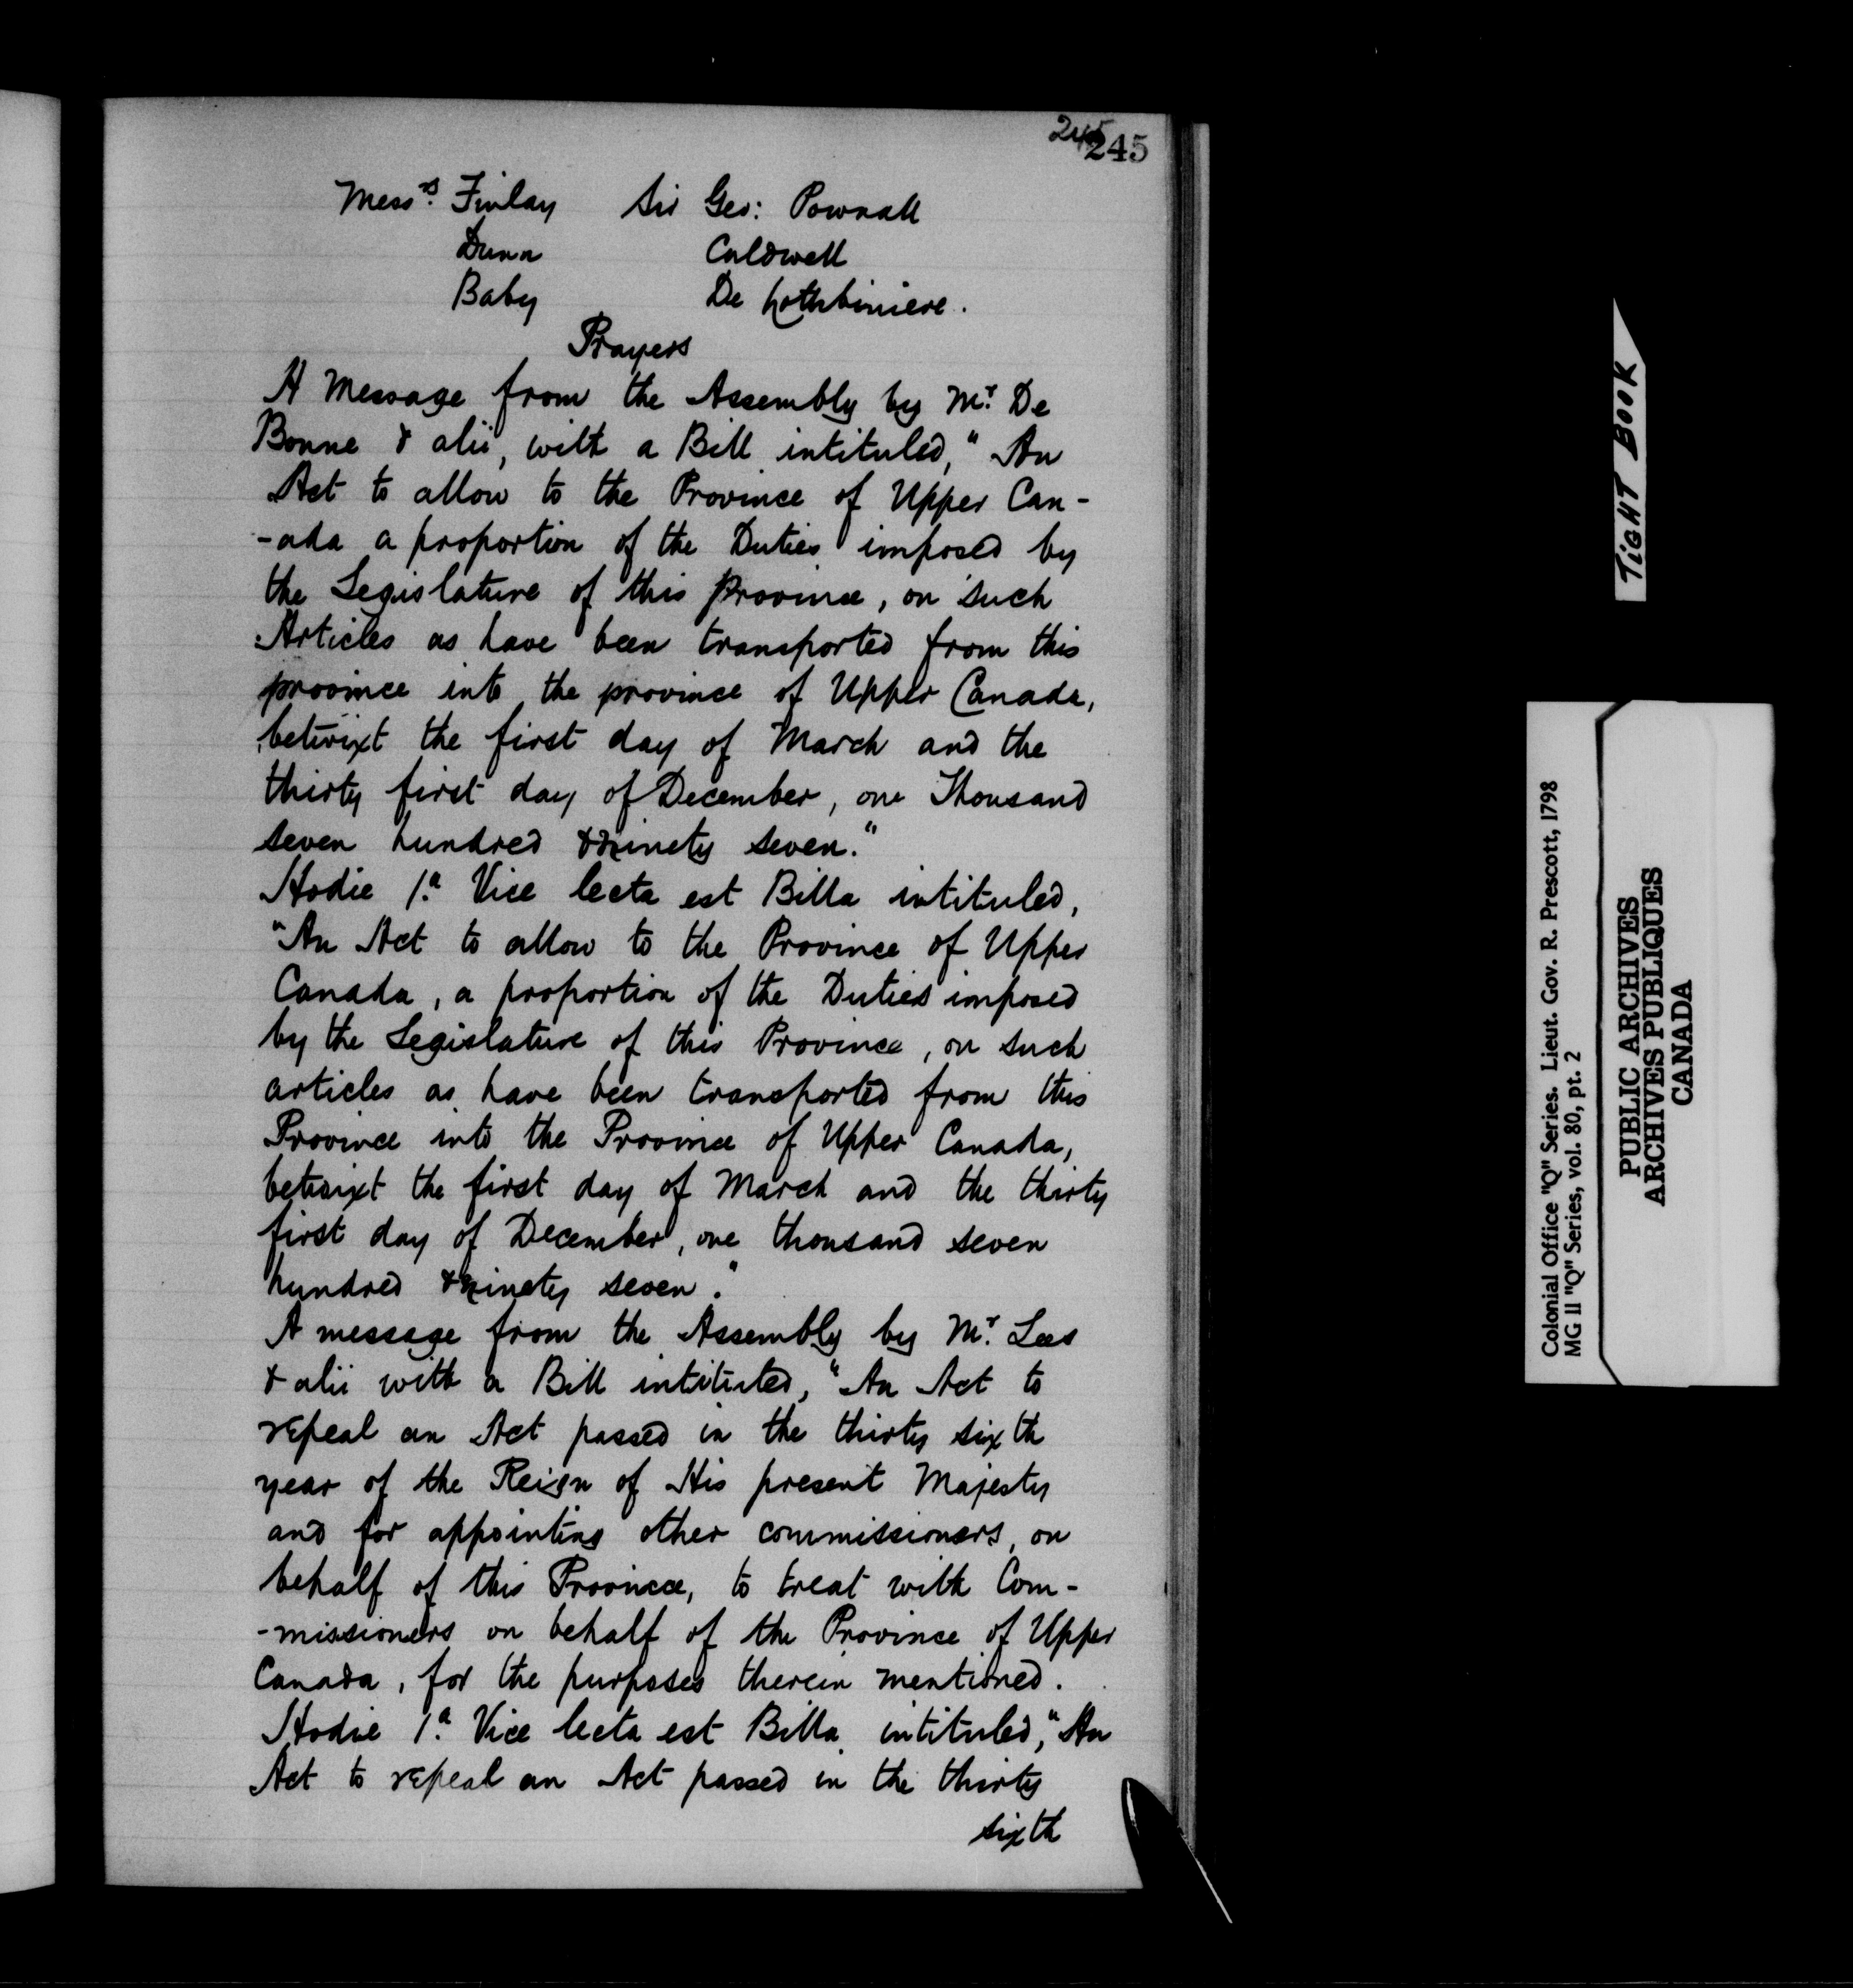 245
245
Mess.rs Finlay Sir Geo: Pownall
Dunn Caldwell
Baby De Lothbiniere.
Prayers
A Message from the Assembly by Mr. De
Bonne & alii, with a Bill intituled, "An
Act to allow to the Province of Upper Can-
-ada a proportion of the Duties imposed by
the Legislature of this Province, on such
Articles as have been transported from this
province into the province of Upper Canada,
betwixt the first day of March and the
thirty first day of December, one Thousand
seven hundred & ninety seven."
Hodie 1.a Vice lecta est Billa intituled,
"An Act to allow to the Province of Upper
Canada, a proportion of the Duties imposed
by the Legislature of this Province, on such
articles as have been transported from this
Province into the Province of Upper Canada,
betwixt the first day of March and the thirty
first day of December, one thousand seven
hundred & ninety seven."
A message from the Assembly by Mr. Lees
& alii with a Bill intituled, "An Act to
repeal an Act passed in the thirty sixth
year of the Reign of His present Majesty
and for appointing other commissioners, on
behalf of this Province, to treat with Com-
-missioners on behalf of the Province of Upper
Canada, for the purposes therein mentioned.
Hodie 1.a Vice lecta est Billa intituled, "An
Act to repeal an Act passed in the thirty
sixth
TIGHT BOOK
Colonial Office "Q" Series. Lieut. Gov. R. Prescott, 1798
MG 11 "Q" Series, vol. 80, pt. 2
PUBLIC ARCHIVES
ARCHIVES PUBLIQUES
CANADA